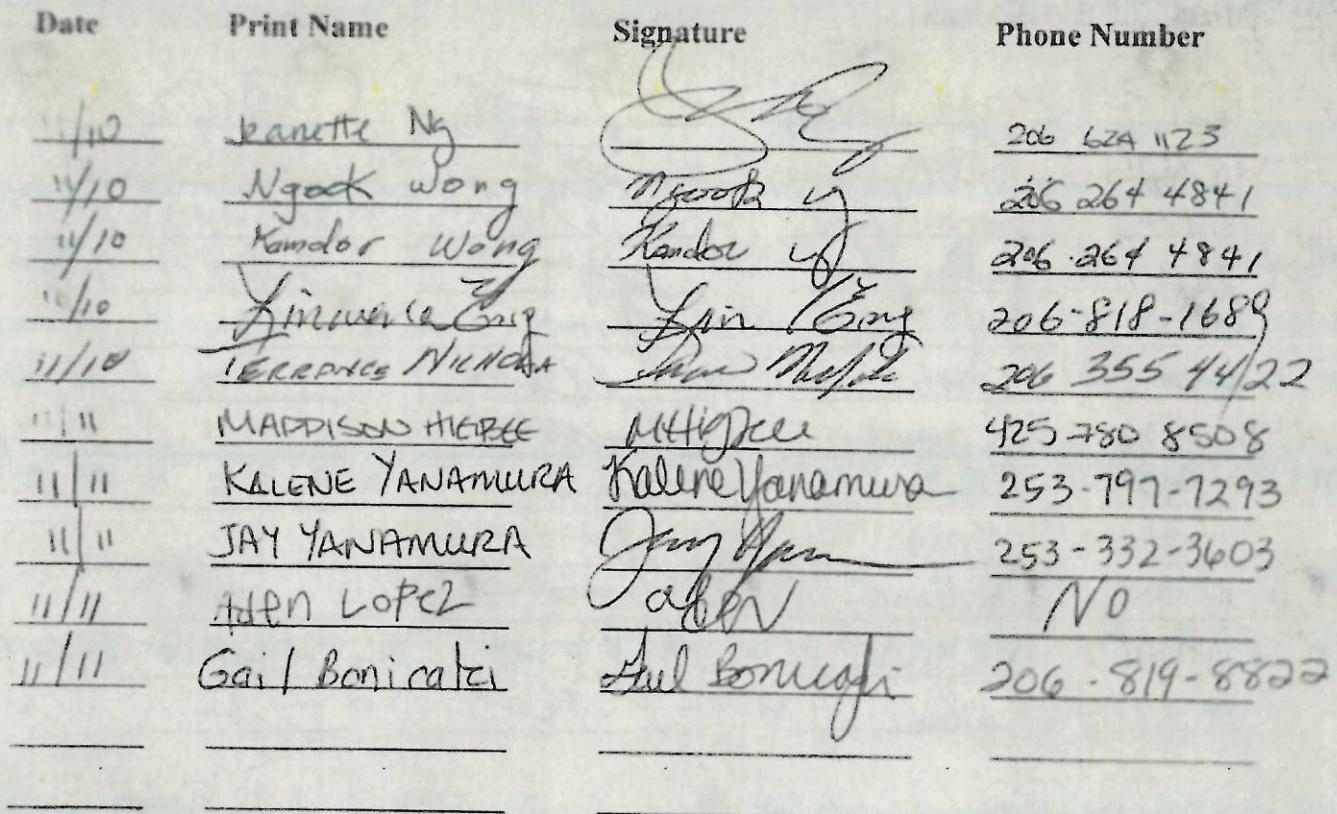 Date Print Name Signature Phone Number
11/10 Jeanette Ng 206 624 1123
11/10 Ngook Wong Ngook 206 264 4841
11/10 Kamdor Wong Kandor 206 264 4841
11/10 Eng Lin Eng 206-818-1689
11/10 TERRANCE 206 355 4422
11/11 MADDISON HIGBEE MHigbee 425 780 8508
11/11 KALENE YANAMURA Kalene Yanamura 253-797-7293
11/11 JAY YANAMURA Jay 253-332-3603
11/11 Aden Lopez aden NO
11/11 Gail Bonicalzi Gail Bonicalzi 206-819-8822